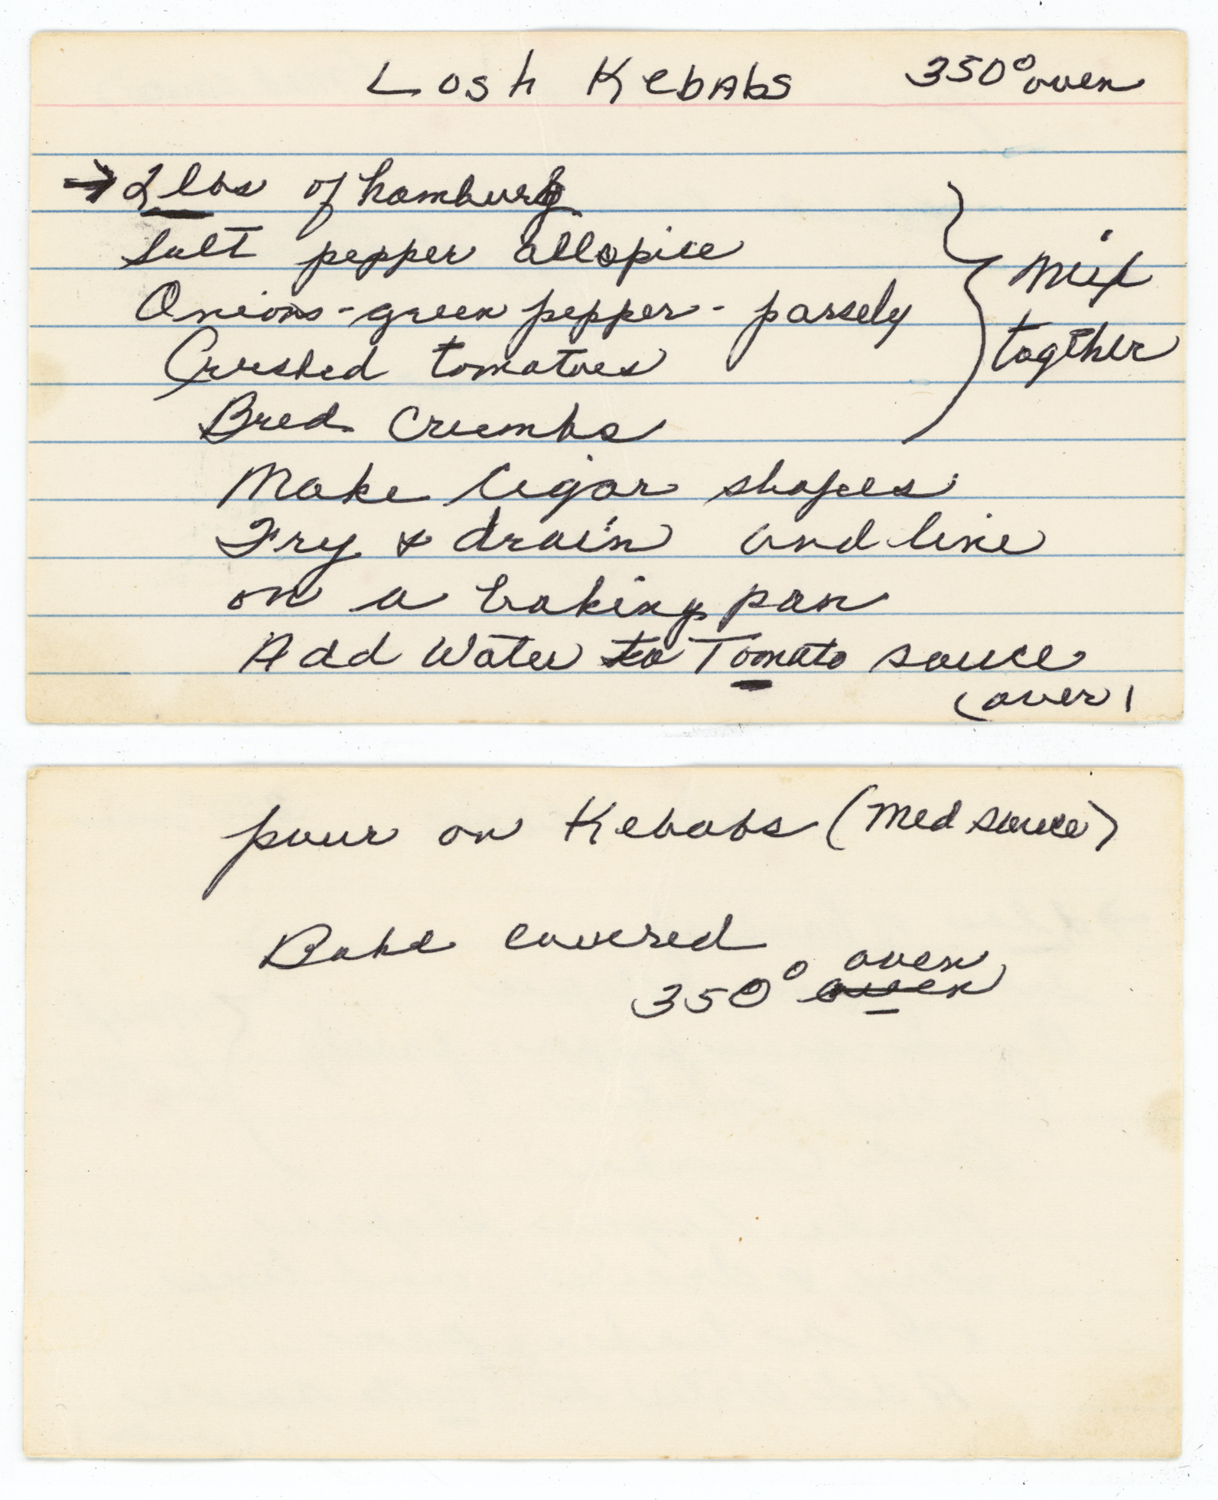 Losh Kebabs 350° oven
→ 2 lbs of hamburg
Salt pepper allspice
Onions - green pepper - parsely
Crushed tomatoes
Bred Crumbs
Mix
togther
Make Cigar shapes
Fry & drain and line
on a baking pan
Add Water to Tomato sauce
(over)
pour on Kebabs (Med sauce)
Bake covered
350° oven